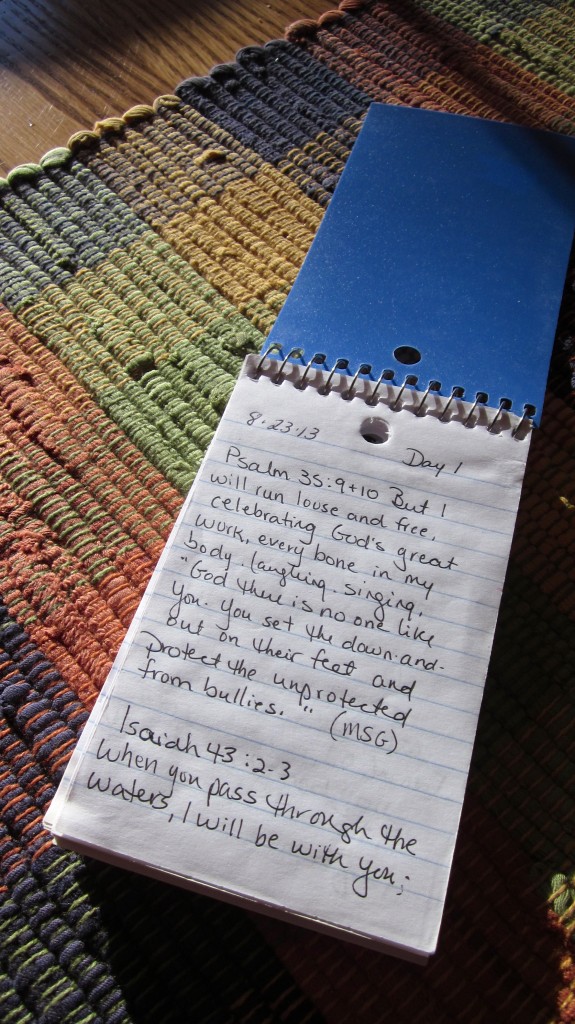 8.23.13
Day 1
Psalm 35:9+10 But I
will run louse and free,
celebrating God's great
work, every bone in my
body laughing, singing,
"God there is no one like
you. You set the down-and-
out on their feet and
protect the unprotected
from bullies." (MSG)
Isaidh 43:2-3
When you pass through the
waters, I will be with you;